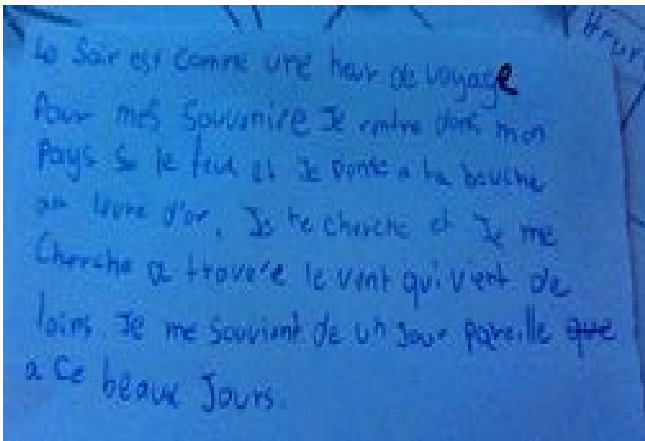 Le Soir est comme une heur de voyage
Pour mes Souvenire Je rentre dans mon
Pays Se le feux et Je Pense a ta bouche
au levre d'or. Je te cherche et Je me
Cherche a travere le vent qui vient de
loins. Je me Souvient de un Jour Pareille que
a Ce beaux Jours.